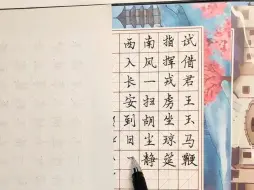 试借君王玉马鞭
指挥戎虏坐琼筵
南风一扫胡尘静
西入长安到日